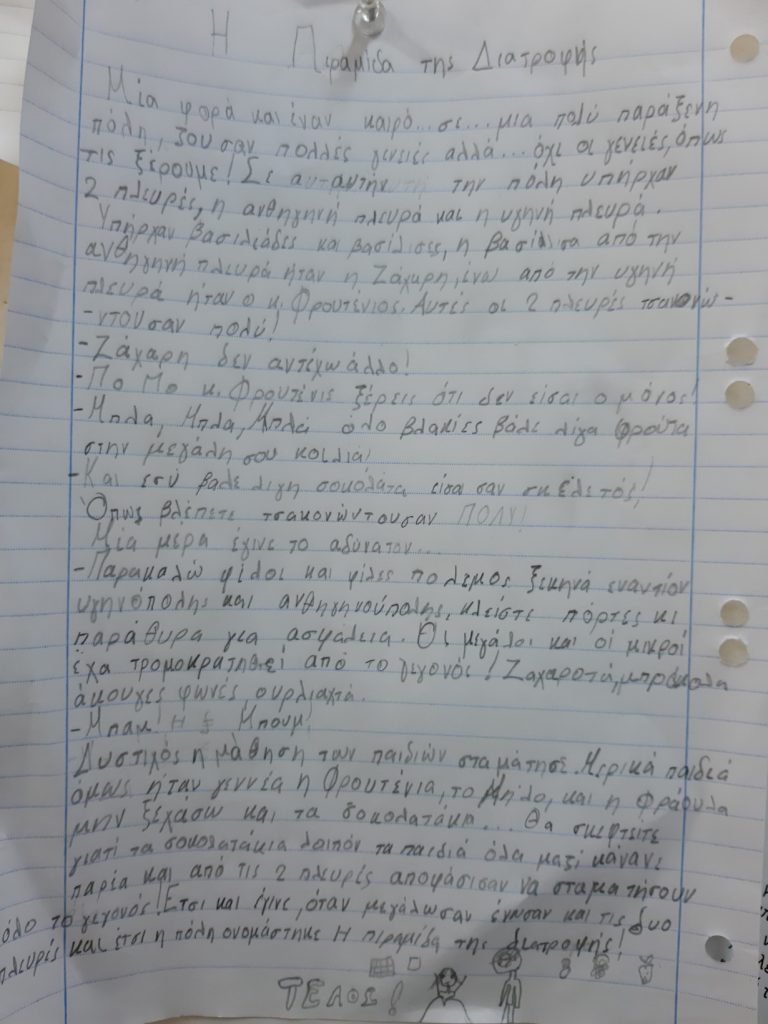 Η Πιραμίδα της Διατροφής
Μία φορά και έναν καιρό... σε... μια πολύ παράξενη
πόλη, ζούσαν πολλές γενειές αλλά... όχι οι γενειές, όπως
τις ξέρουμε! Σε την πόλη υπήρχαν
2 πλευρές, η ανθηγηνή πλευρά και η υγηνή πλευρά.
Υπήρχαν βασιλιάδες και βασίλισες, η βασίλισα από την
ανθηγηνή πλευρά ήταν η Ζάχαρη, ενώ από την υγηνή
πλευρά ήταν ο κ. Φρουτένιος. Αυτές οι 2 πλευρές τσακονώ-
-ντουσαν πολύ!
-Ζάχαρη δεν αντέχω άλλο!
-Πο Μο κ. Φρουτένις ξέρεις ότι δεν είσαι ο μόνος!
-Μπλα, Μπλα, Μπλα όλο βλακίες βάλε λίγα φρούτα
στην μεγάλη σου κοιλιά!
-Και εσύ βαλε λιγη σοκολάτα είσαι σαν σκελετός!
Όπως βλέπετε τσακονώντουσαν ΠΟΛΥ!
Μία μέρα έγινε το αδύνατον...
-Παρακαλώ φίλοι και φίλες πολεμος ξεκηνά εναντίον
υγηνόπολης και ανθηγηνούπολης, κλείστε πόρτες κι
παράθυρα για ασφάλεια. Οι μεγάλοι και οί μικροί
έχα τρομοκράτηθεί από το γεγονός! Ζαχαροτά, μπρόκολα
άκουγες φωνές, ουρλιαχτά.
-Μπαμ! Μπουμ!
Δυστιχός η μάθηση των παιδιών σταμάτησε. Μερικά παιδιά
όμως ήταν γεννέα η Φρουτένια, το Μήλο, και η Φράουλα
μην ξεχάσω και τα σοκολατάκη... Θα σκεφτείτε
γιατί τα σοκολατάκια λοιπόν τα παιδιά όλα μαζί κάνανε
παρία και από τις 2 πλευρές αποφάσισαν να σταματήσουν
όλο το γεγονός! Ετσι και έγινε, όταν μεγάλωσαν ένωσαν και τις δυο
πλευρές και έτσι η πόλη ονομάστηκε Η πιραμίδα της διατροφής!
ΤΕΛΟΣ!